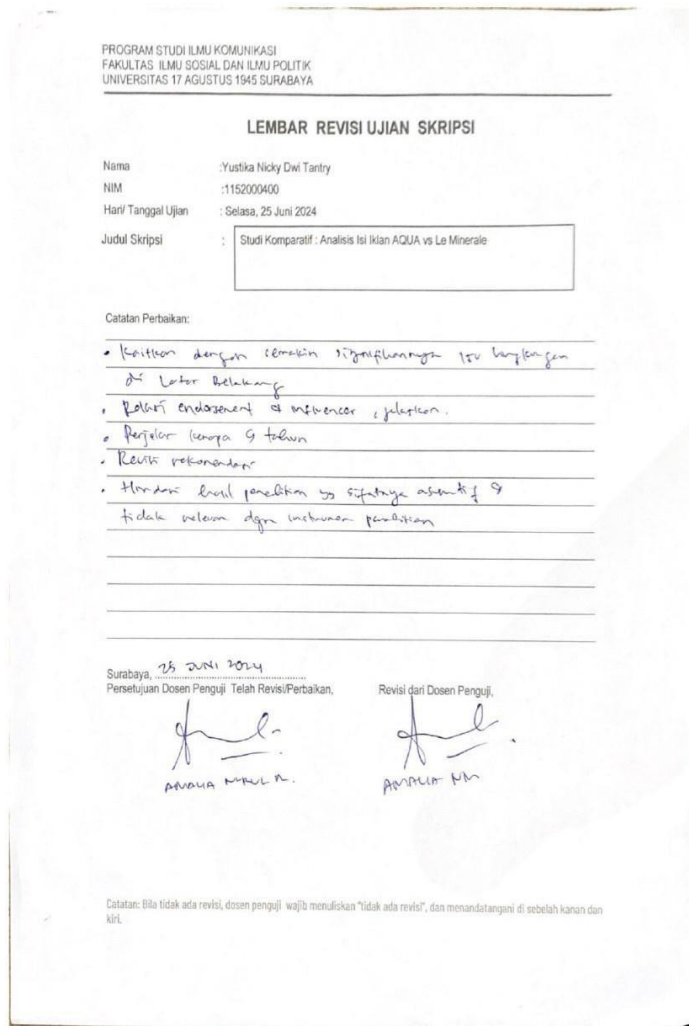 PROGRAM STUDI ILMU KOMUNIKASI
FAKULTAS ILMU SOSIAL DAN ILMU POLITIK
UNIVERSITAS 17 AGUSTUS 1945 SURABAYA
LEMBAR REVISI UJIAN SKRIPSI
Nama :Yustika Nicky Dwi Tantry
NIM :1152000400
Hari/ Tanggal Ujian : Selasa, 25 Juni 2024
Judul Skripsi : Studi Komparatif : Analisis Isi Iklan AQUA vs Le Minerale
Catatan Perbaikan:
• Kaitkan dengan semakin signifikannya isu lingkungan
di Latar Belakang
• Relasi endorsement & influencer, jelaskan.
• Perjelas kenapa 9 tahun
• Revisi rekomendasi
• Hindari hasil penelitian yg sifatnya asumtif &
tidak relevan dgn instrumen penelitian
Surabaya, 25 JUNI 2024
Persetujuan Dosen Penguji Telah Revisi/Perbaikan, Revisi dari Dosen Penguji,
AMALIA NURUL M. AMALIA NM
Catatan: Bila tidak ada revisi, dosen penguji wajib menuliskan "tidak ada revisi", dan menandatangani di sebelah kanan dan
kiri.